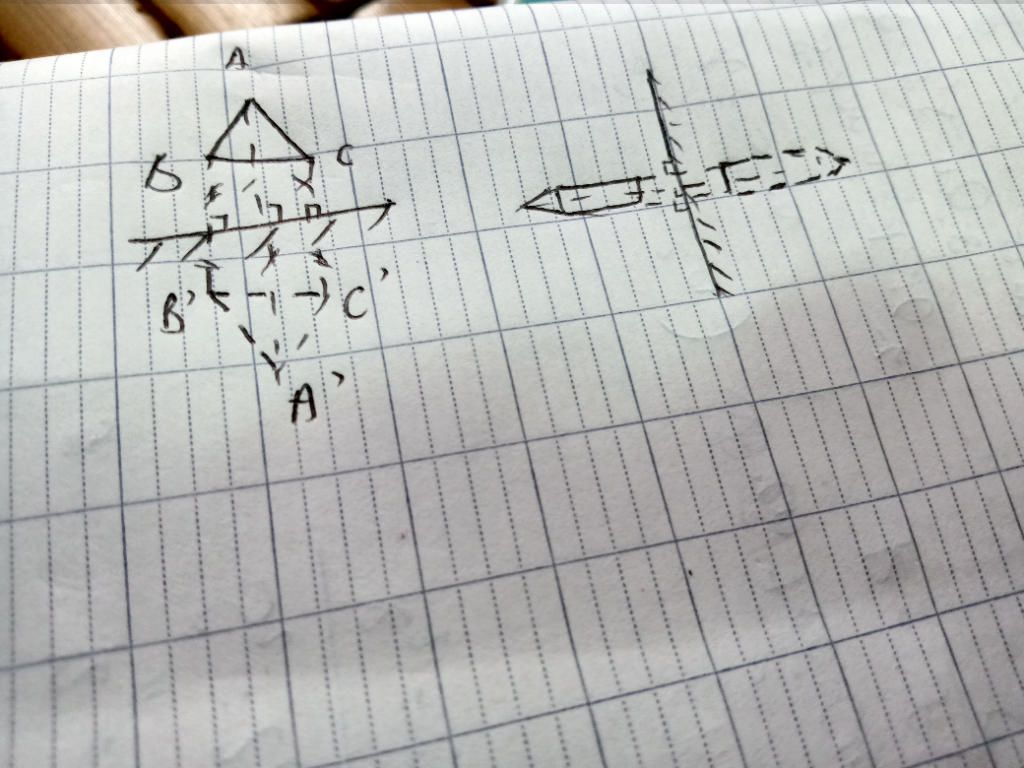 A
B C
B' C'
A'